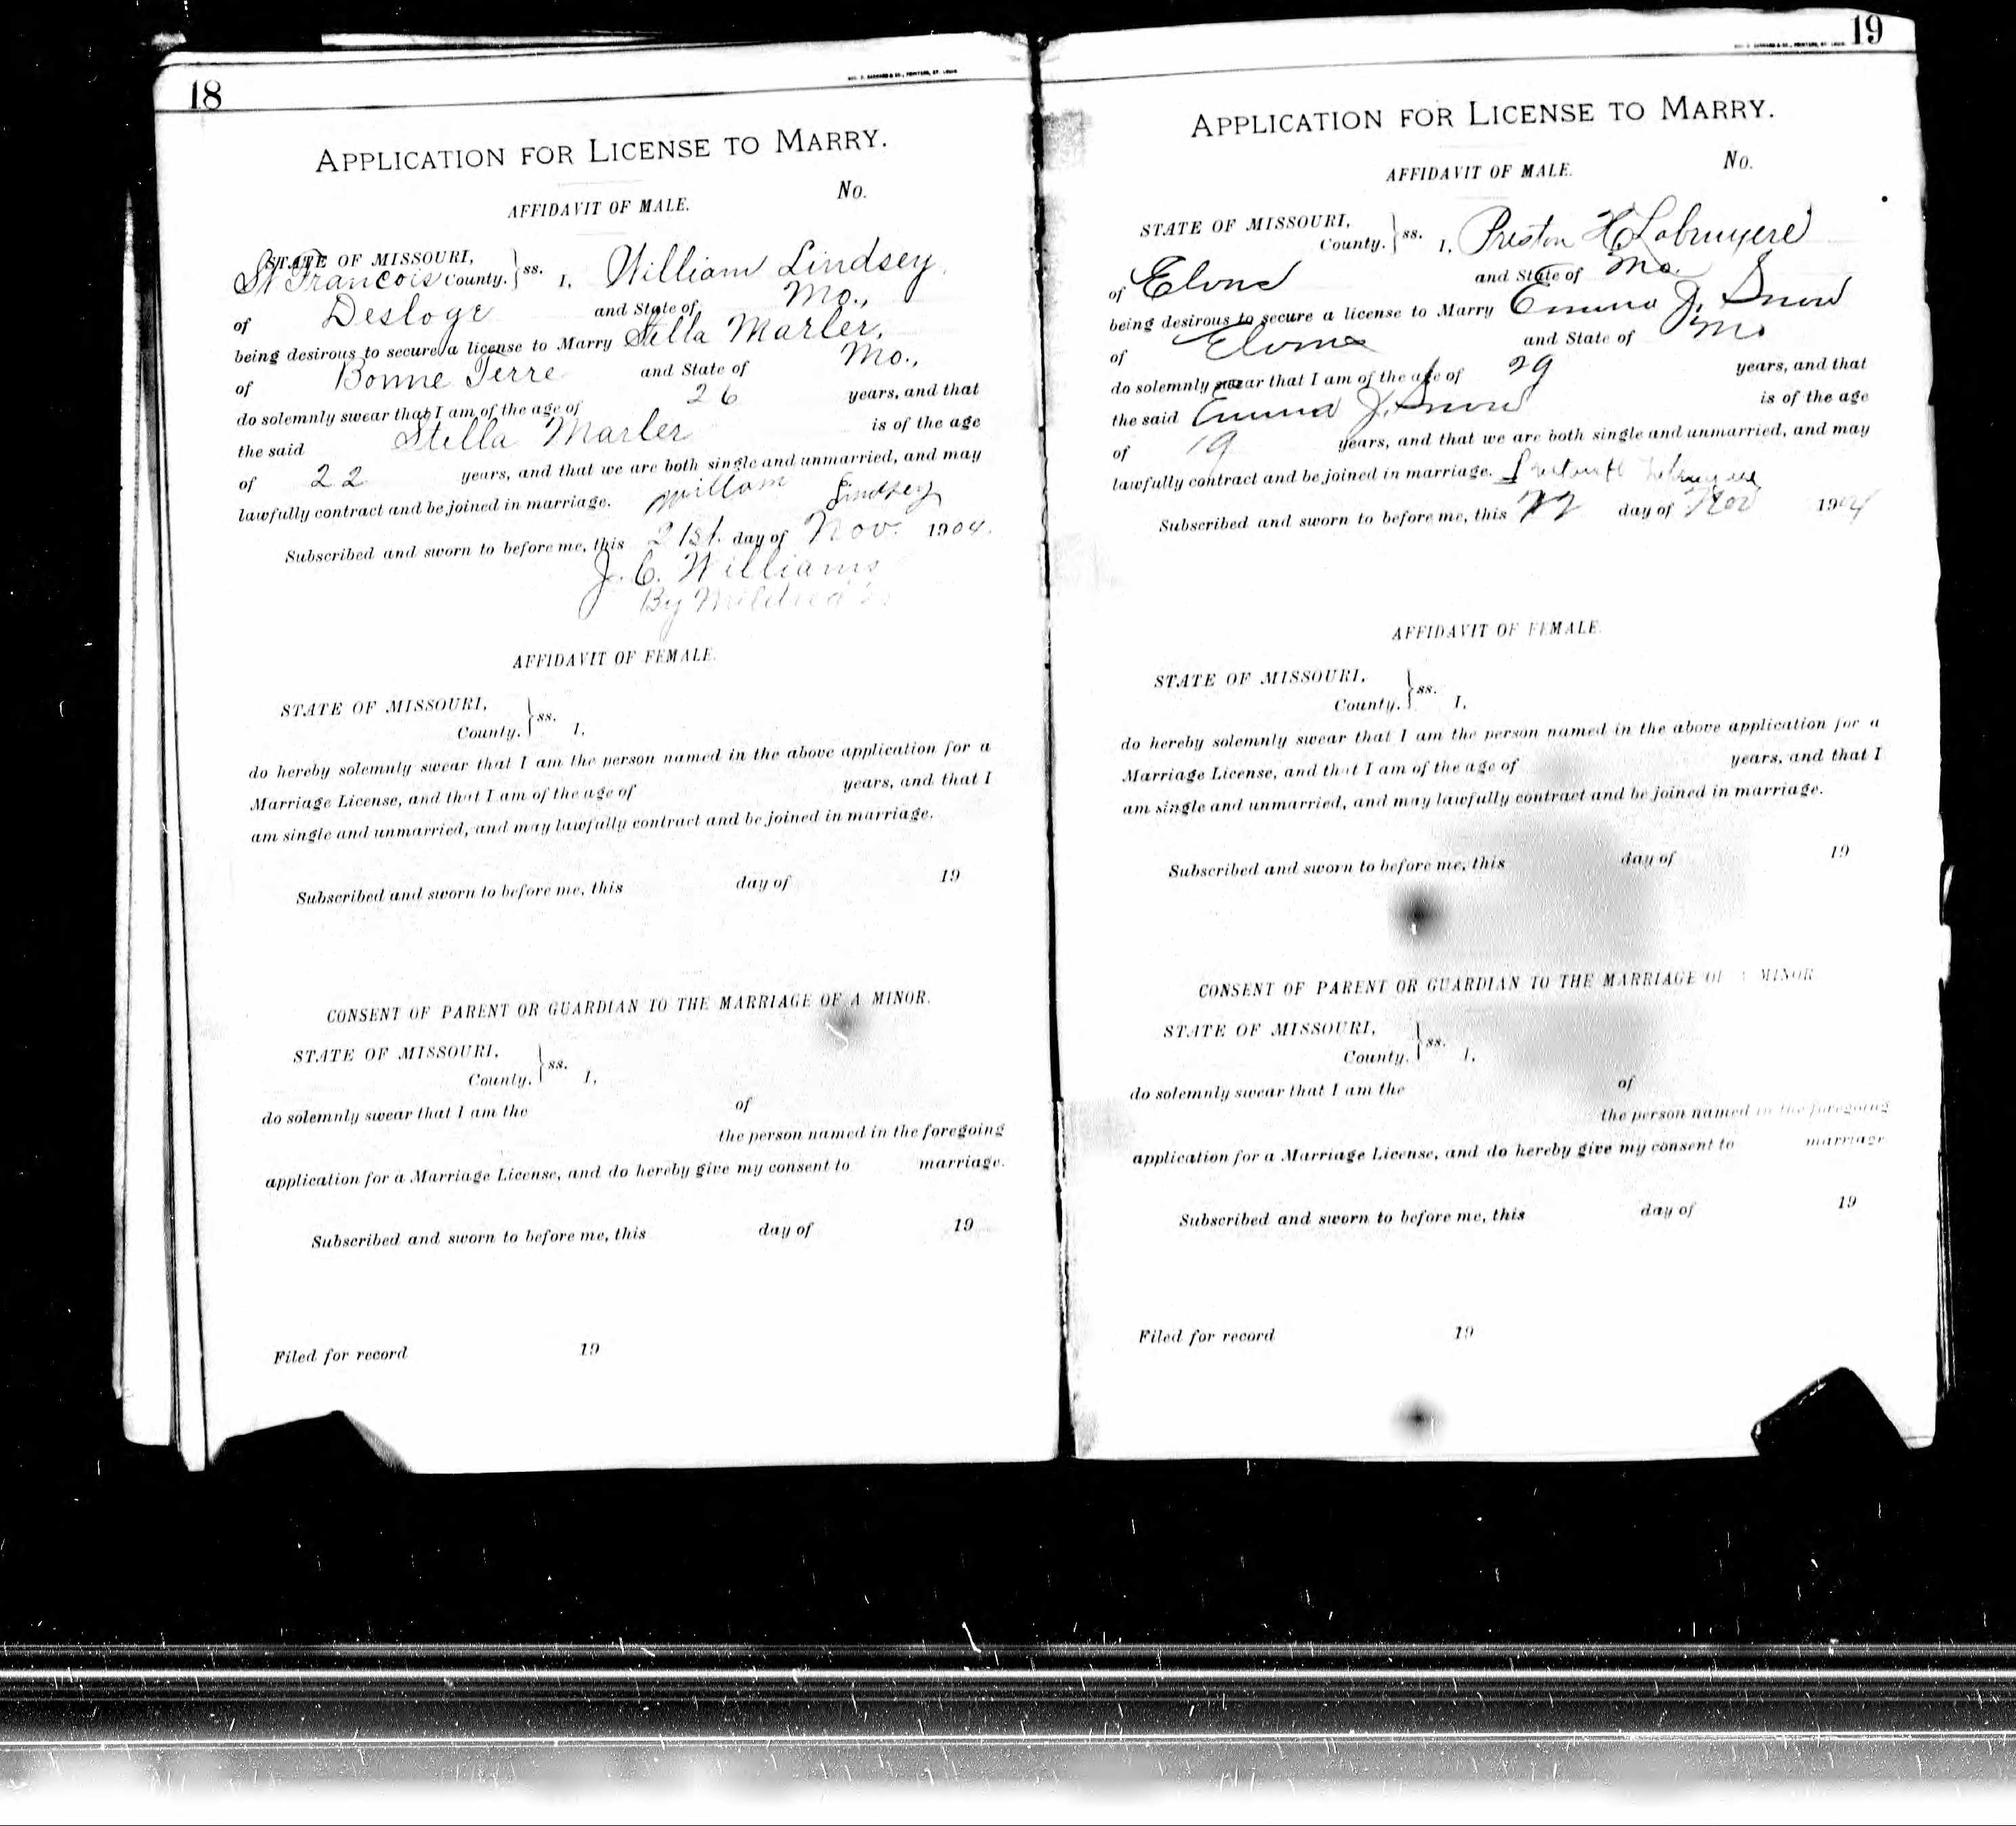 18
APPLICATION FOR LICENSE TO MARRY.
AFFIDAVIT OF MALE. No.
STATE OF MISSOURI,
St Francois County. } ss. I, William Lindsey
of Desloge and State of Mo.,
being desirous to secure a license to Marry Stella Marler,
of Bonne Terre and State of Mo.,
do solemnly swear that I am of the age of 26 years, and that
the said Stella Marler is of the age
of 22 years, and that we are both single and unmarried, and may
lawfully contract and be joined in marriage. William Lindsey
Subscribed and sworn to before me, this 21st. day of Nov. 1904.
J. C. Williams
By Mildred
AFFIDAVIT OF FEMALE.
STATE OF MISSOURI,
County. } ss. I,
do hereby solemnly swear that I am the person named in the above application for a
Marriage License, and that I am of the age of years, and that I
am single and unmarried, and may lawfully contract and be joined in marriage.
Subscribed and sworn to before me, this day of 19
CONSENT OF PARENT OR GUARDIAN TO THE MARRIAGE OF A MINOR.
STATE OF MISSOURI,
County. } ss. I,
do solemnly swear that I am the of
the person named in the foregoing
application for a Marriage License, and do hereby give my consent to marriage.
Subscribed and sworn to before me, this day of 19
Filed for record 19
19
APPLICATION FOR LICENSE TO MARRY.
AFFIDAVIT OF MALE. No.
STATE OF MISSOURI,
County. } ss. I, Preston H Labruyere
of Elvins and State of Mo.
being desirous to secure a license to Marry Emma J. Snow
of Elvins and State of Mo
do solemnly swear that I am of the age of 29 years, and that
the said Emma J. Snow is of the age
of 19 years, and that we are both single and unmarried, and may
lawfully contract and be joined in marriage.
Subscribed and sworn to before me, this 22 day of Nov 1904
AFFIDAVIT OF FEMALE.
STATE OF MISSOURI,
County. } ss. I,
do hereby solemnly swear that I am the person named in the above application for a
Marriage License, and that I am of the age of years, and that I
am single and unmarried, and may lawfully contract and be joined in marriage.
Subscribed and sworn to before me, this day of 19
CONSENT OF PARENT OR GUARDIAN TO THE MARRIAGE OF A MINOR
STATE OF MISSOURI,
County. } ss. I,
do solemnly swear that I am the of
the person named in the foregoing
application for a Marriage License, and do hereby give my consent to marriage
Subscribed and sworn to before me, this day of 19
Filed for record 19